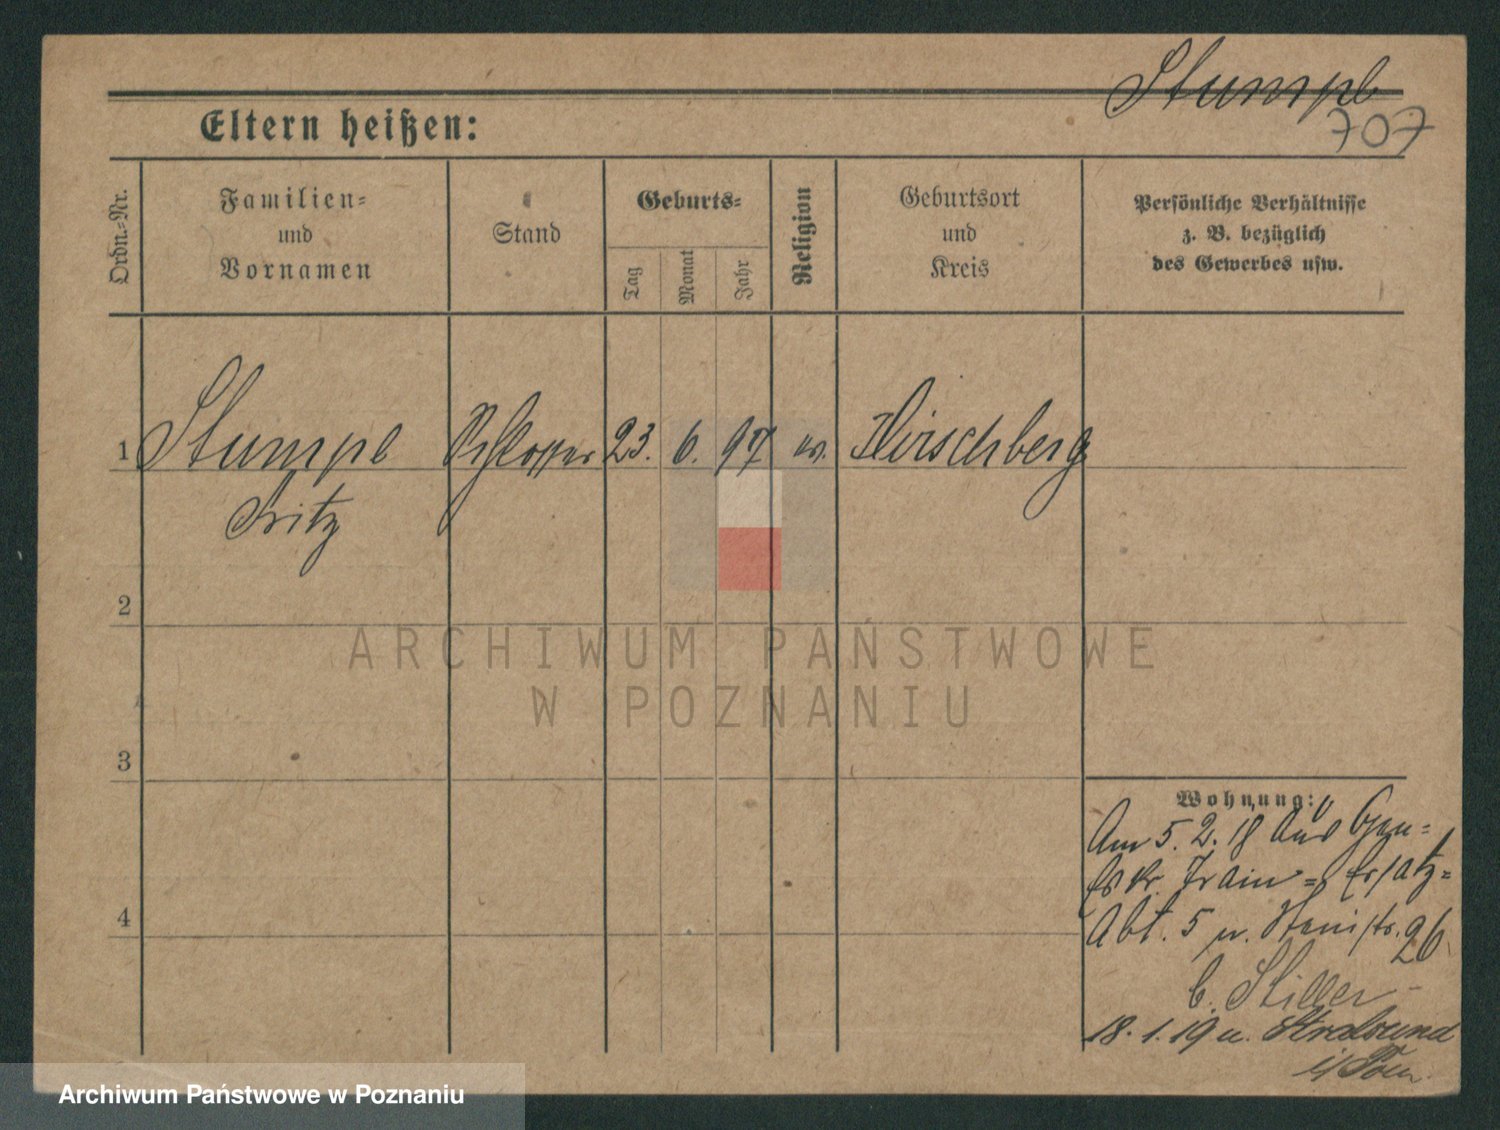 Stumpe
707
Eltern heißen:
Ordn.-Nr.
Familien-
und
Vornamen
Stand
Geburts-
Tag
Monat
Jahr
Religion
Geburtsort
und
Kreis
Persönliche Verhältnisse
z. B. bezüglich
des Gewerbes usw.
1 Stumpe Schlosser 23. 6. 97 ev. Hirschberg
Fritz
2
3
4
Wohnung:
Am 5. 2. 18 aus
Train- Ersatz-
Abt. 5 n. 26
b. Stiller
18. 1. 19 n. Stralsund
i/ Pom.
ARCHIWUM PAŃSTWOWE
W POZNANIU
Archiwum Państwowe w Poznaniu